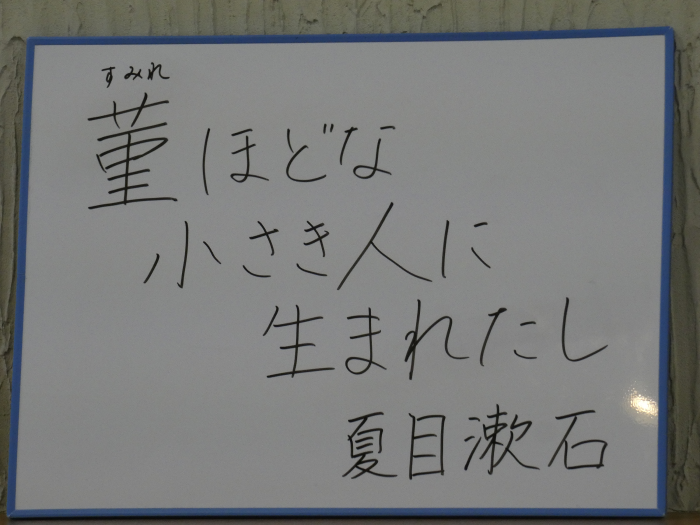 すみれ
菫ほどな
小さき人に
生まれたし
夏目漱石